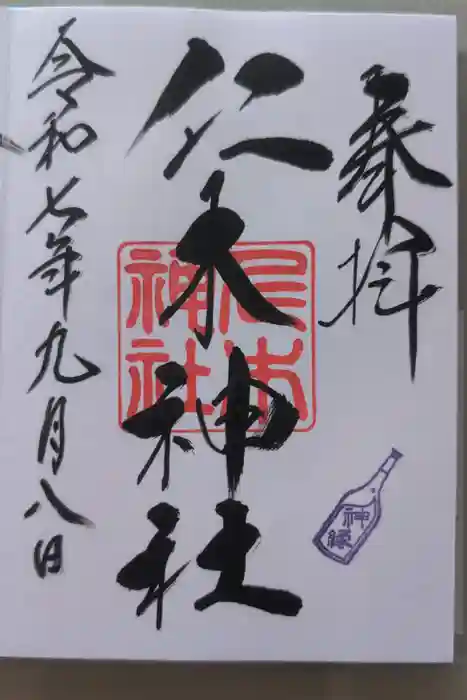 奉拝
仁木神社
仁木
神社
令和七年九月八日
神縁